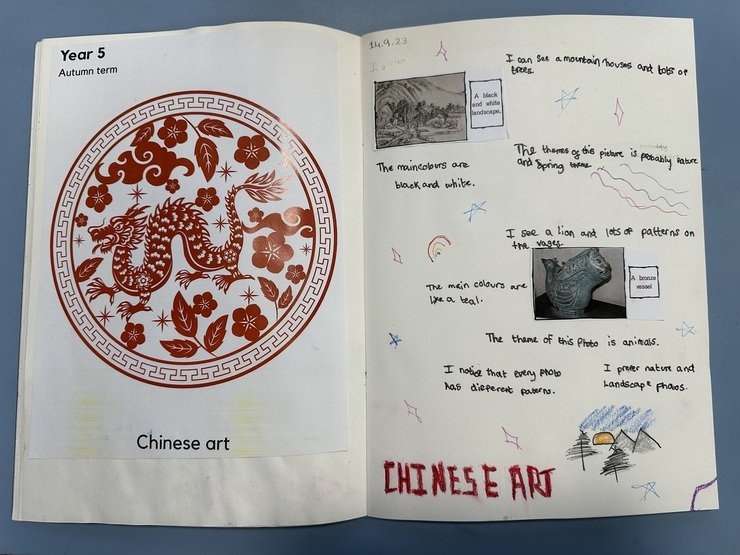 Year 5
Autumn term
Chinese art
14.9.23
I can see a mountain houses and lots of
trees.
A black
and white
landscape.
The main colours are
black and white.
The themes of this picture is probably nature
and spring theme.
I see a lion and lots of patterns on
the vages.
A bronze
vessel
The main colours are
like a teal.
The theme of this photo is animals.
I notice that every photo
has different paterns.
I prefer nature and
landscape photos.
CHINESE ART